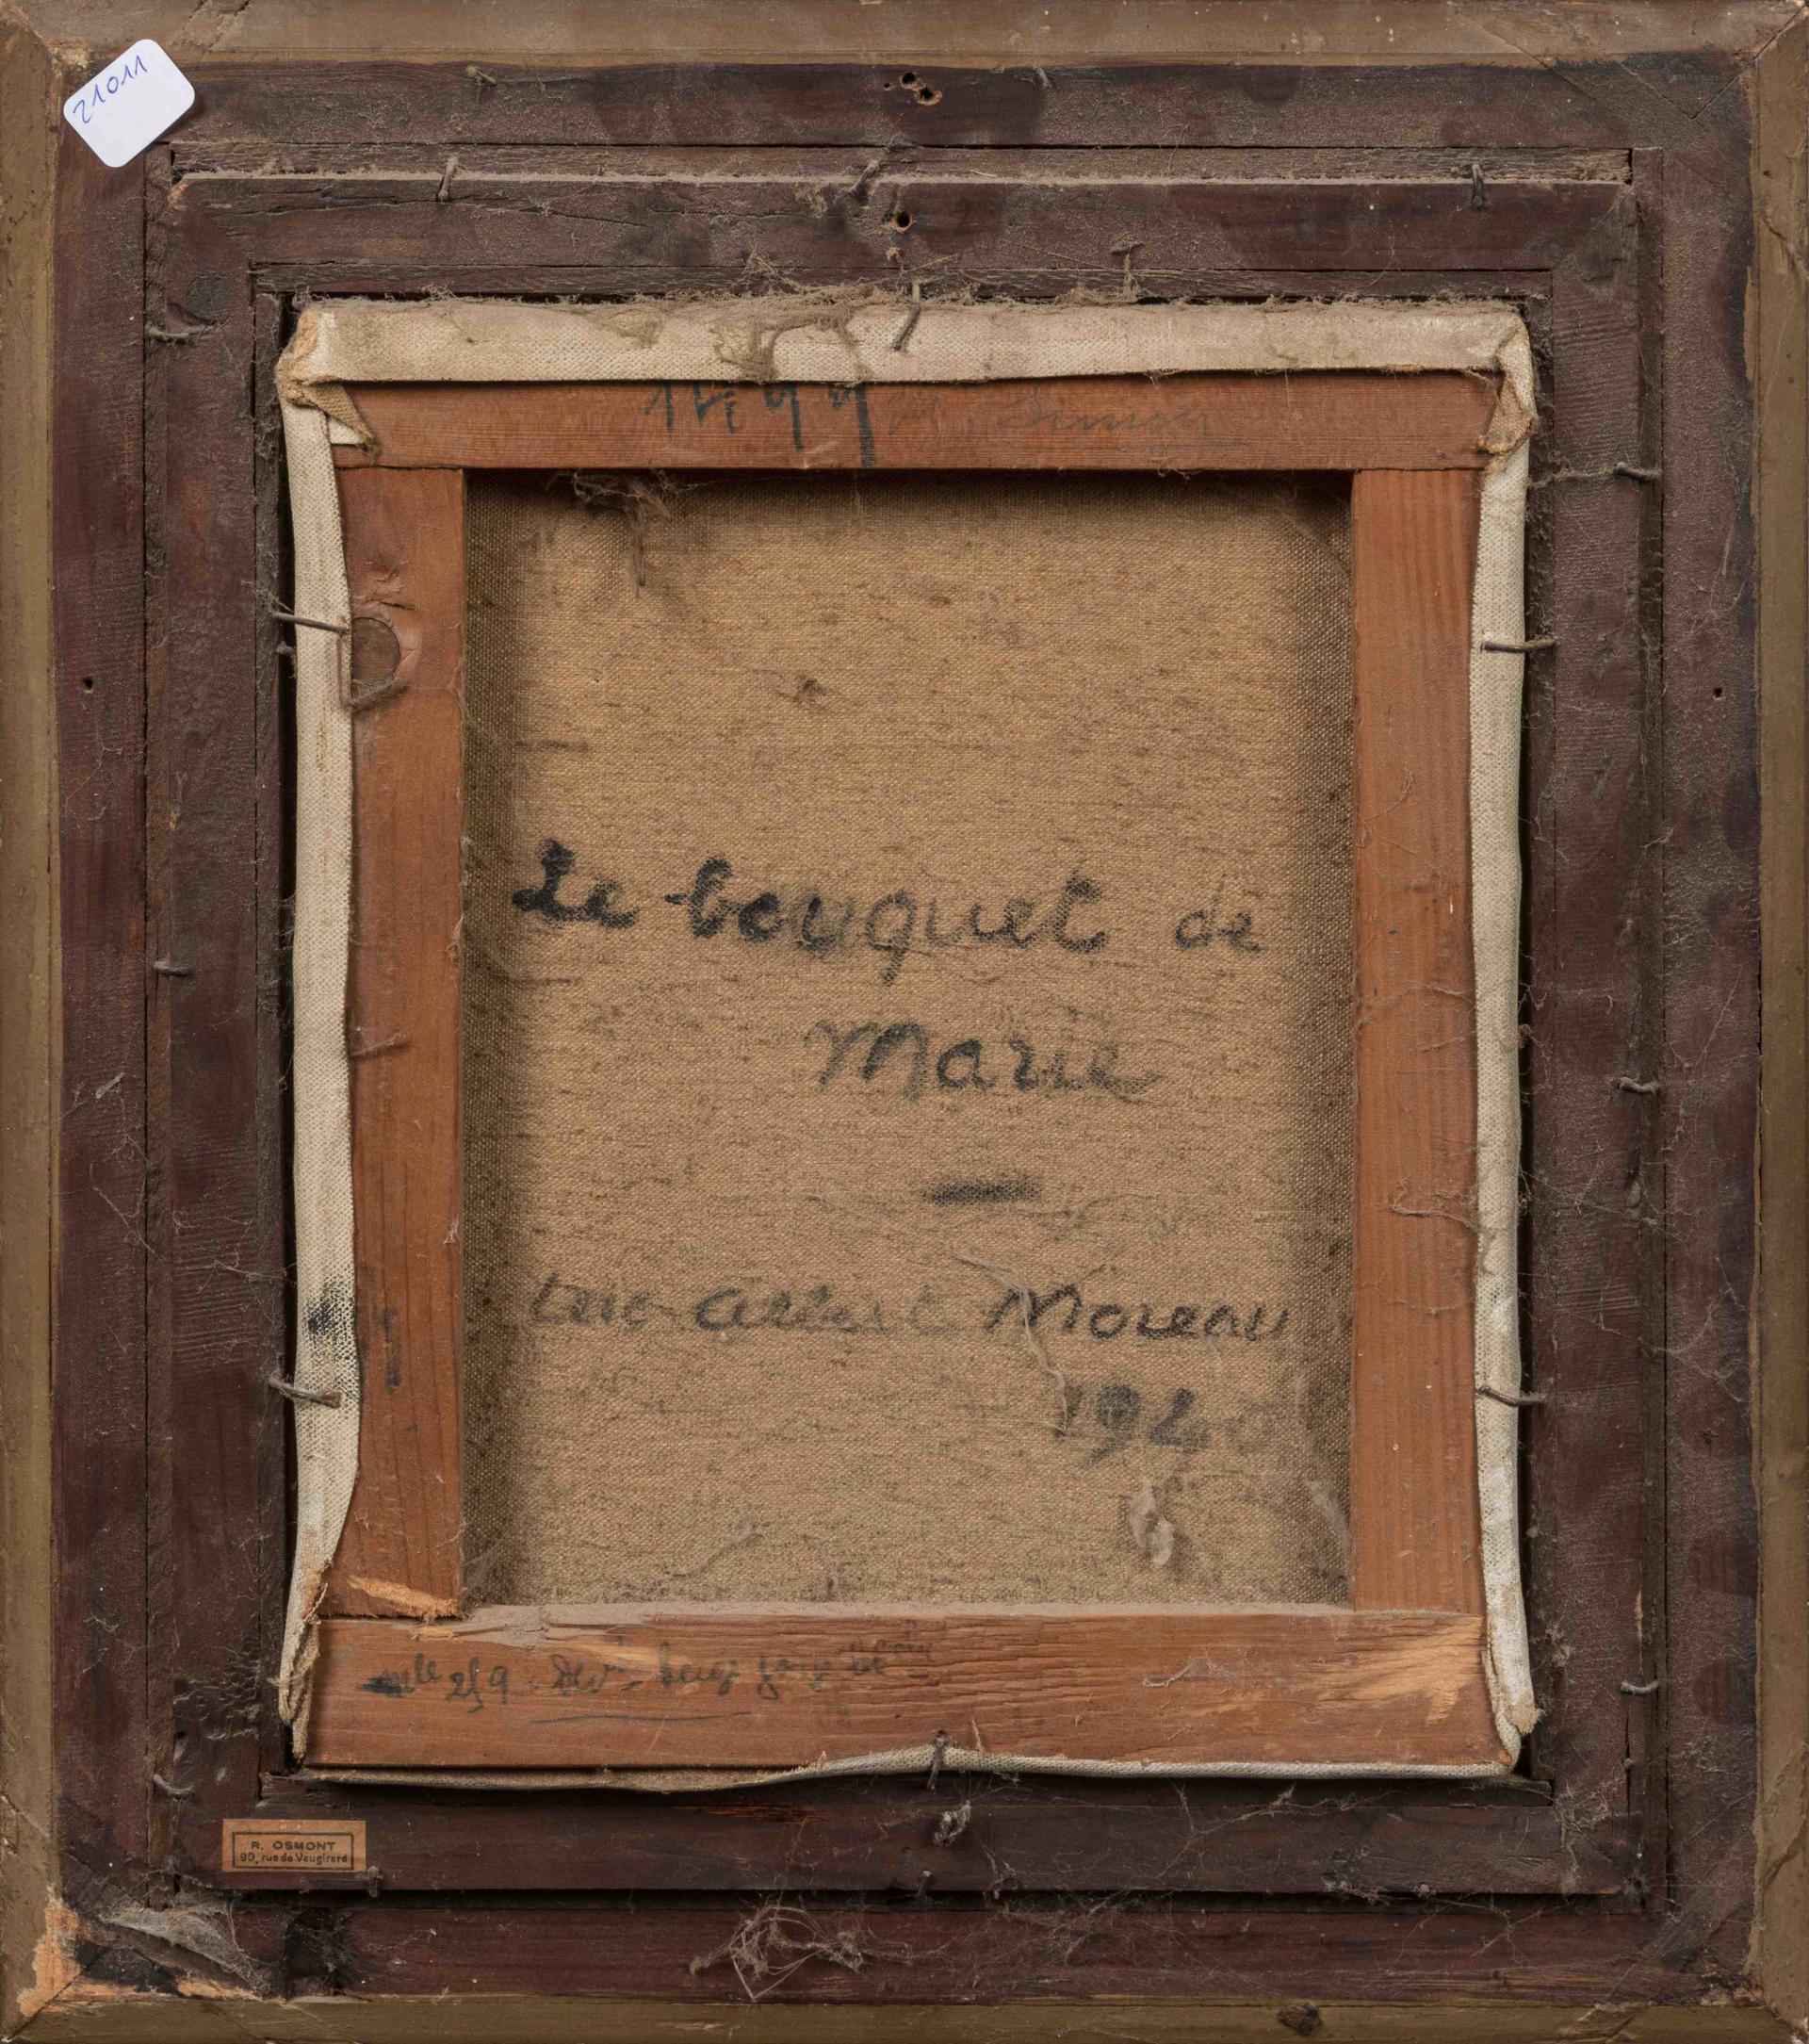 21011
1499 Simon
Le bouquet de
Marie
Luc-Albert Moreau
194
R. OSMONT
90, rue de Vaugirard